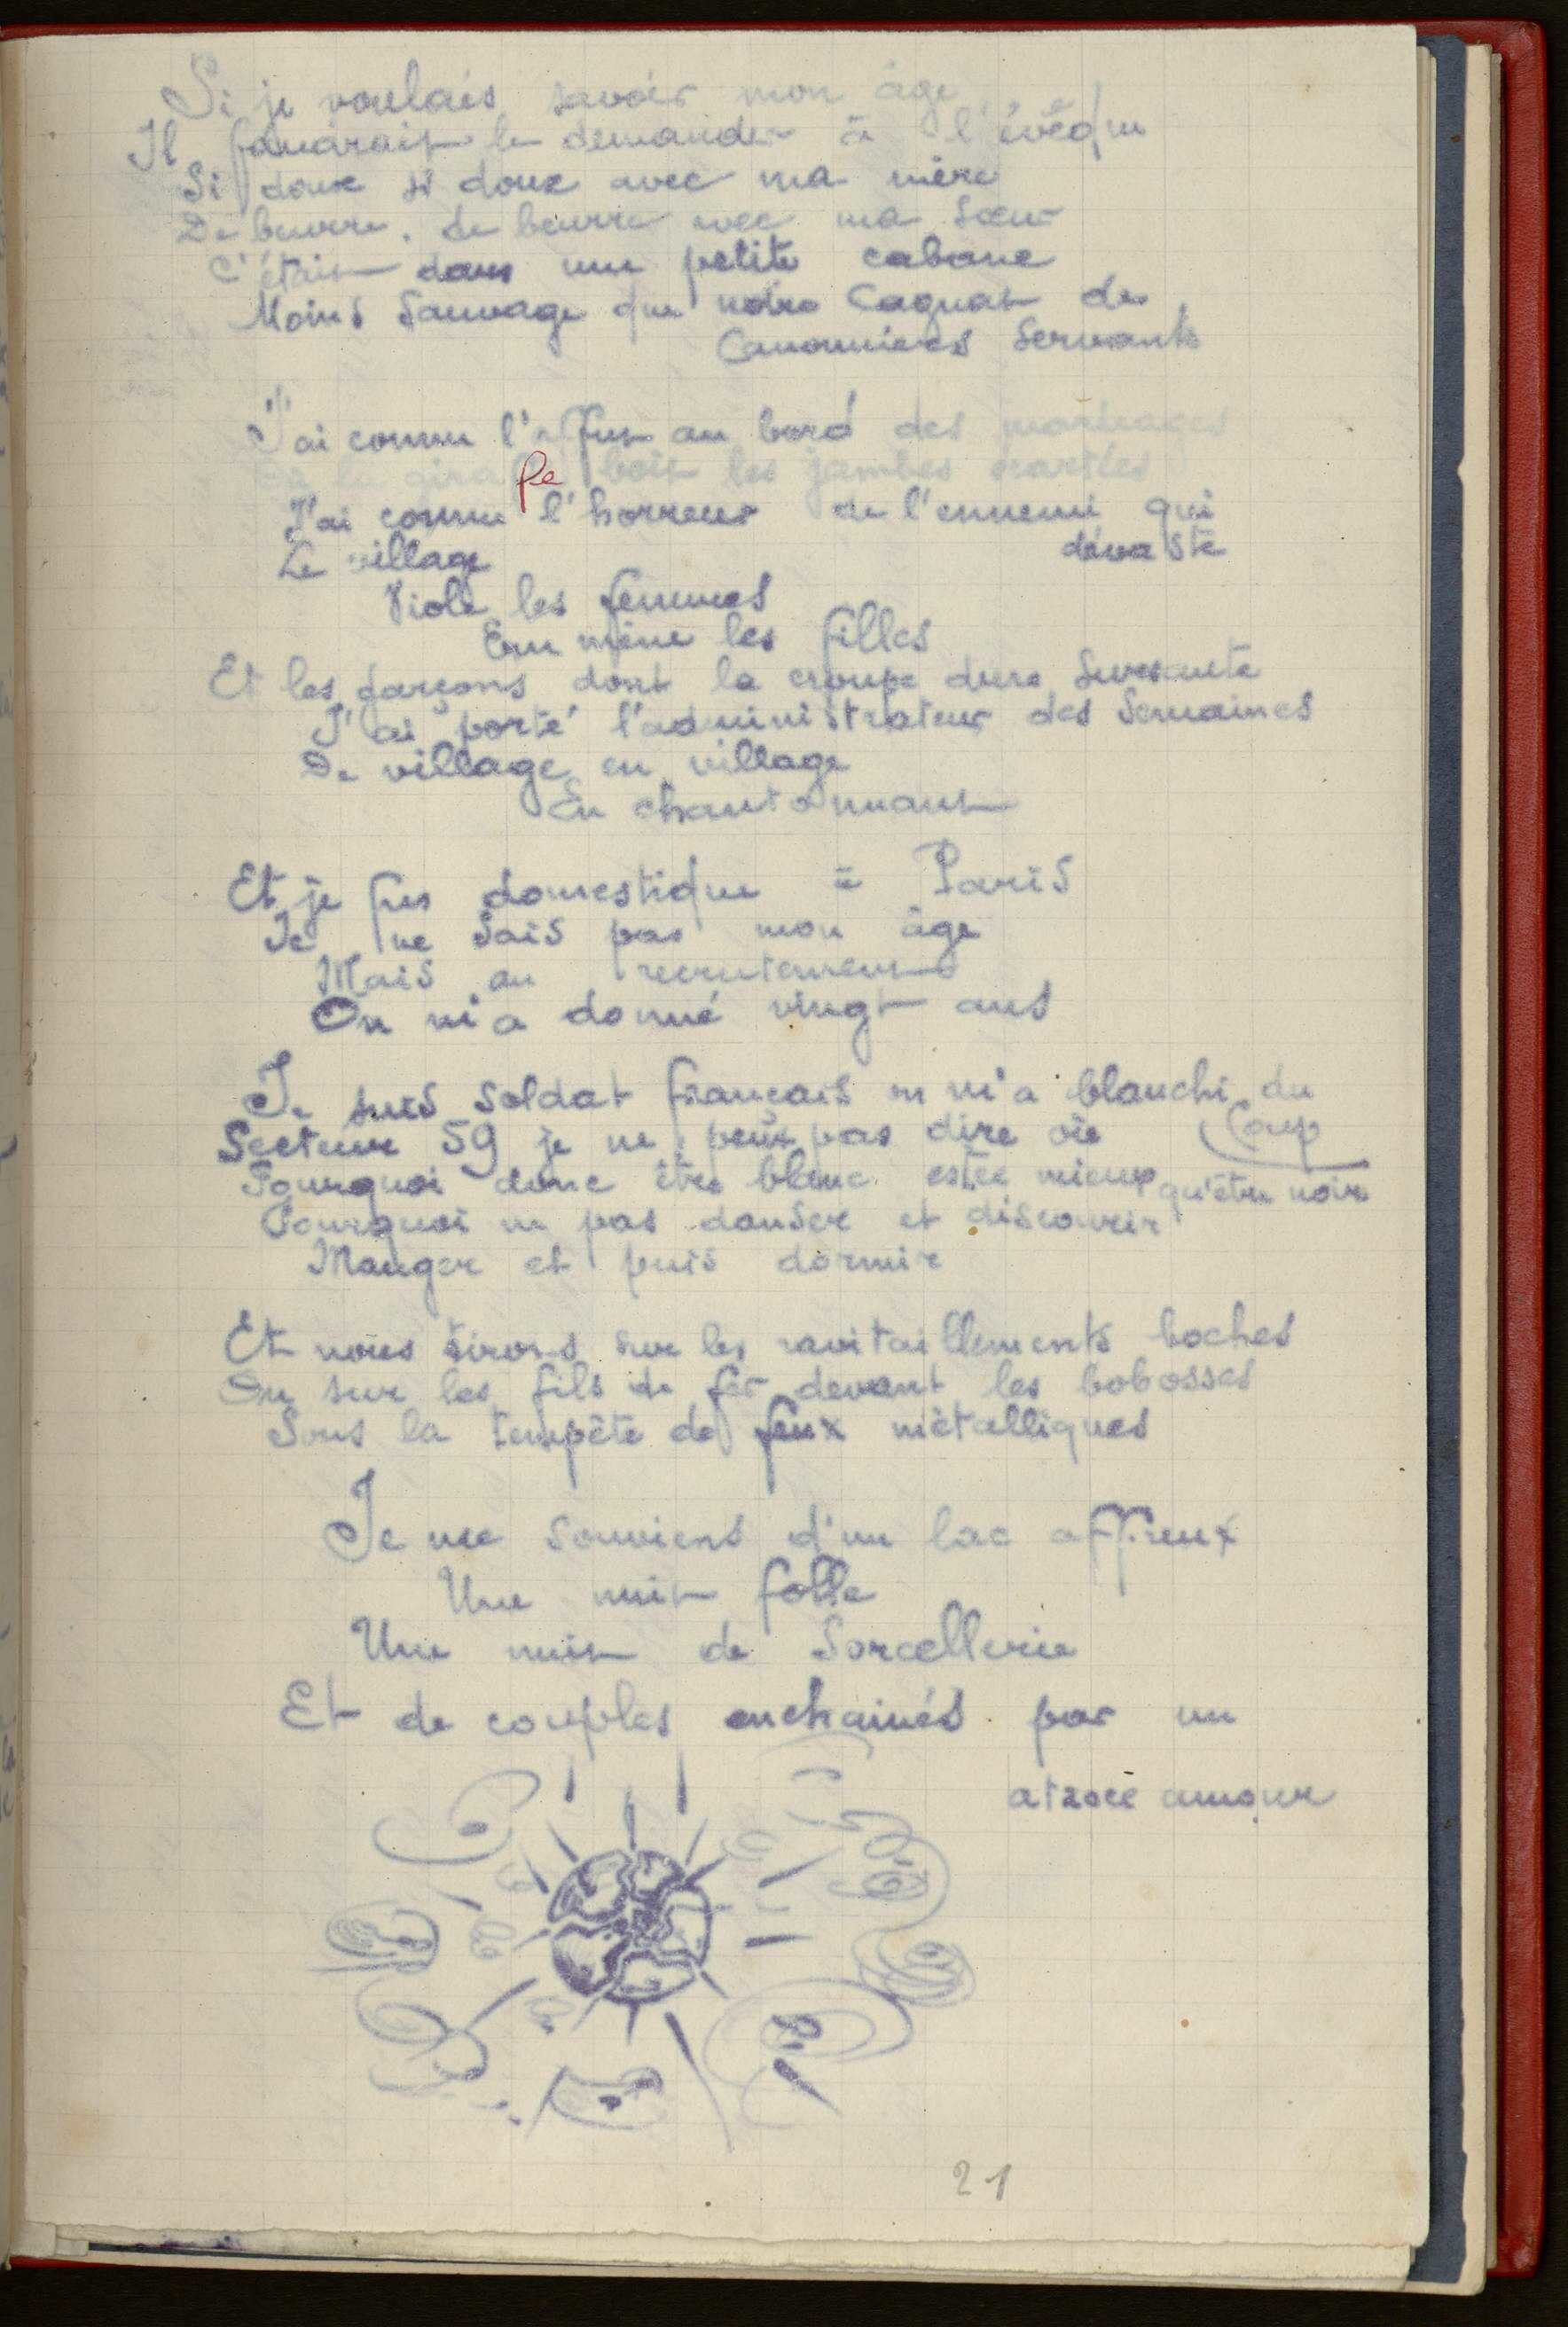 Si je voulais savoir mon âge
Il faudrait le demander à l'évêque
Si doux si doux avec ma mère
De beurre, de beurre avec ma sœur
C'était dans une petite cabane
Moins sauvage que notre Cagnat de
Canonniers Servants
J'ai connu l'affut au bord des marécages
Où la girafe boit les jambes écartées
J'ai connu l'horreur de l'ennemi qui
dévaste
Le village
Viole les femmes
Emmène les filles
Et les garçons dont la croupe dure sursaute
J'ai porté l'administrateur des Semaines
De village en village
En chantonnant
Et je fus domestique à Paris
Je ne sais pas mon âge
Mais au recrutement
On m'a donné vingt ans
Je suis soldat français on m'a blanchi du
Coup
Secteur 59 je ne peux pas dire où
Pourquoi donc être blanc estce mieux qu'être noir
Pourquoi ne pas danser et discourir
Manger et puis dormir
Et nous tirons sur les ravitaillements boches
Ou sur les fils de fer devant les bobosses
Sous la tempête de feux métalliques
Je me souviens d'un lac affreux
Une nuit folle
Une nuit de Sorcellerie
Et de couples enchainés par un
atroce amour
21